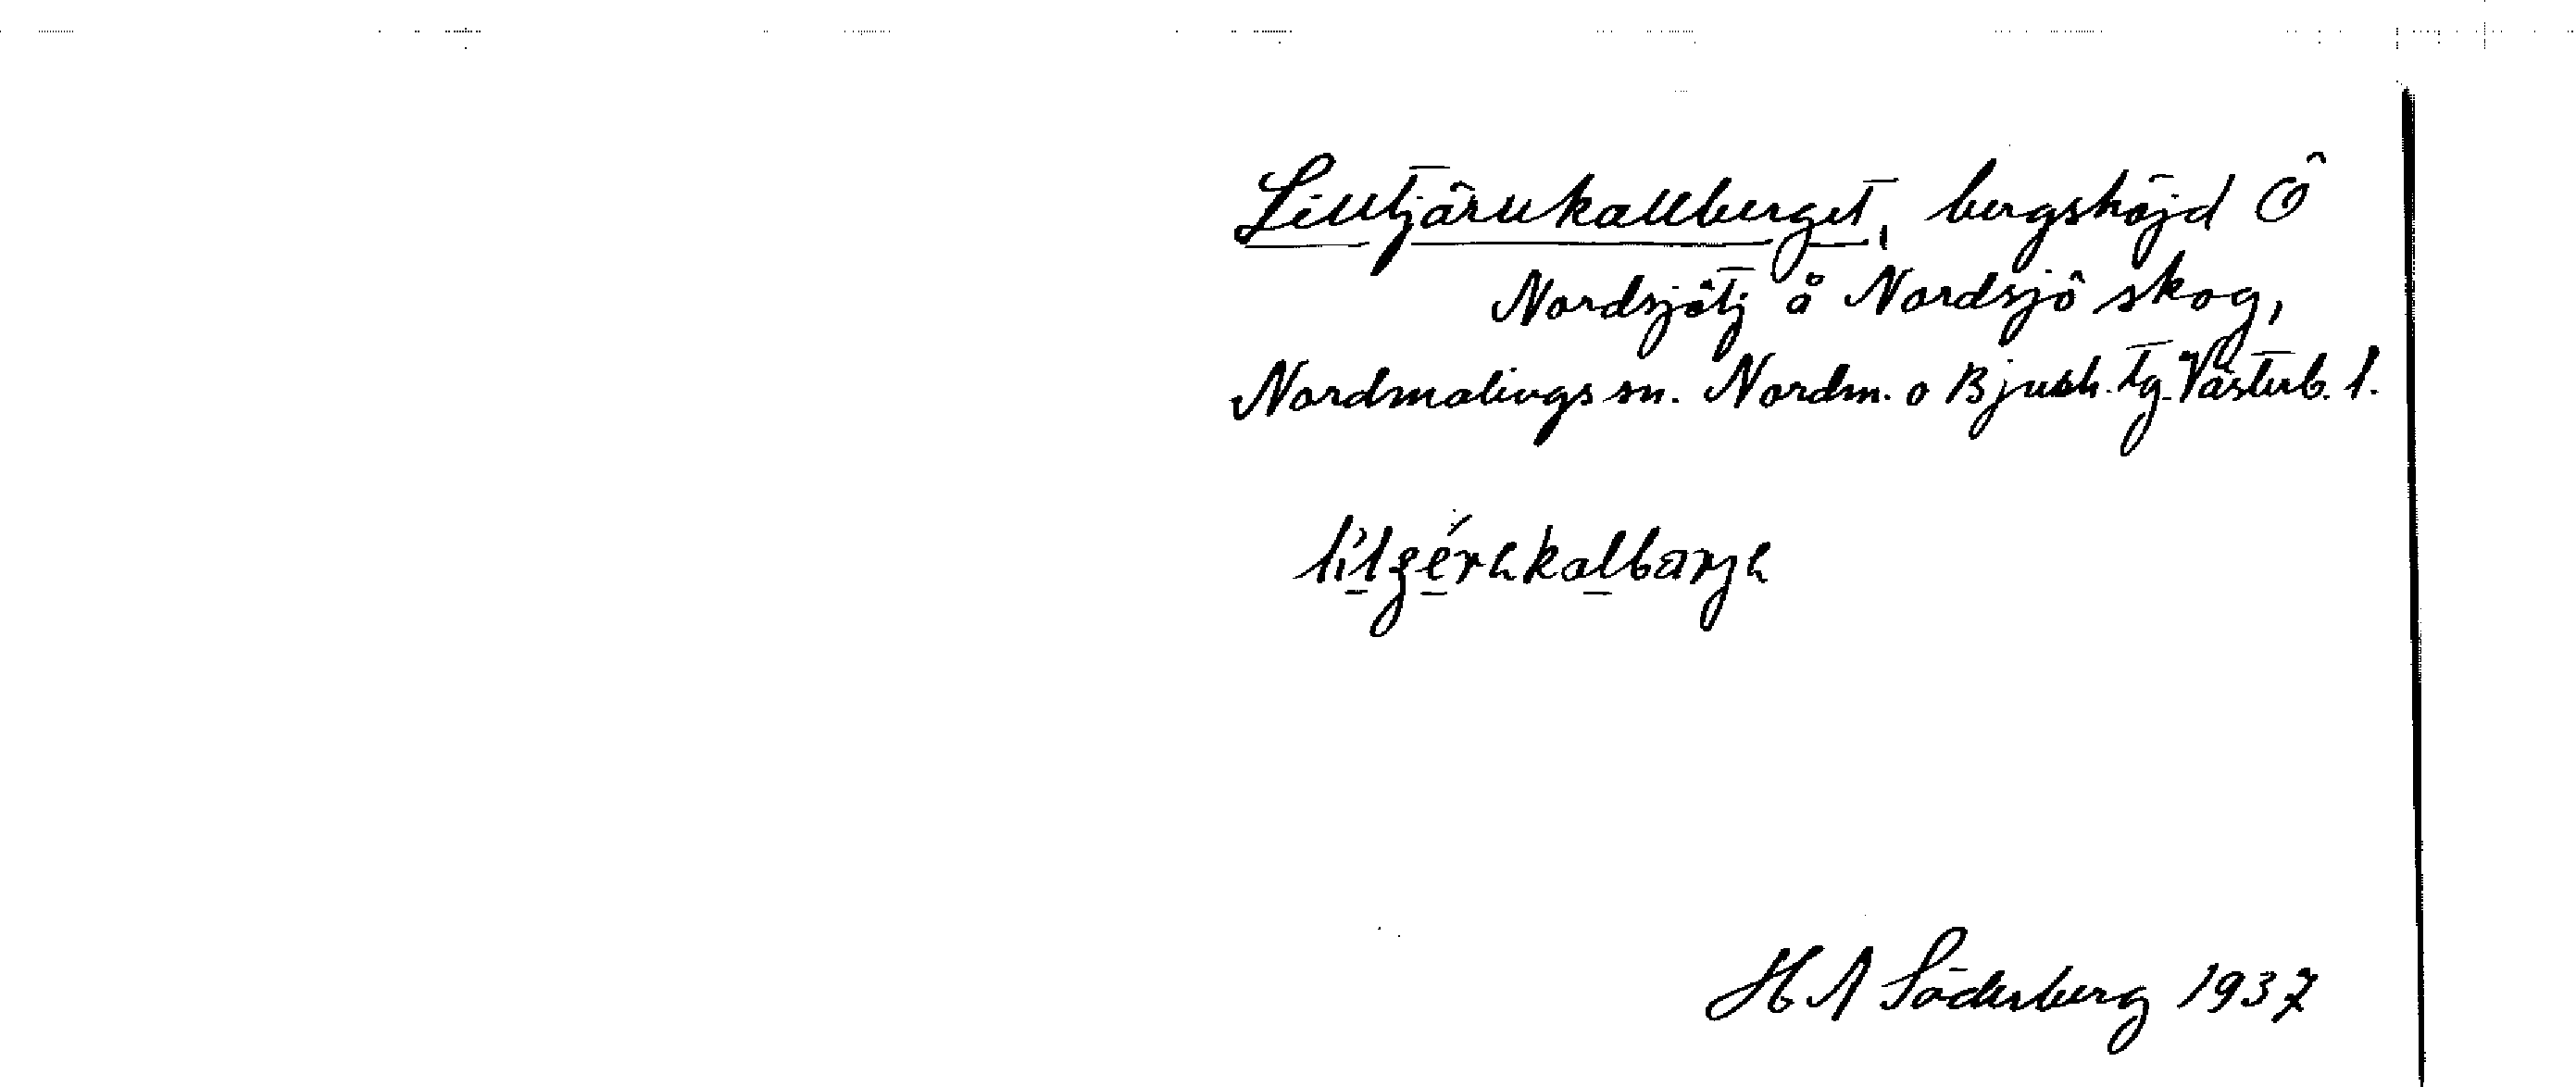 Lilltjärnkallberget, bergshöjd Ö
Nordsjötj å Nordsjö skog,
Nordmalings sn. Nordm. o Bjurh. tg. Västerb. l.
H A Söderberg 1937